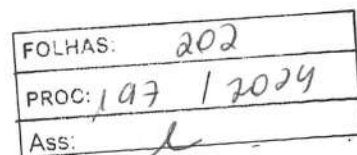 FOLHAS: 202
PROC: 197 / 2024
Ass: